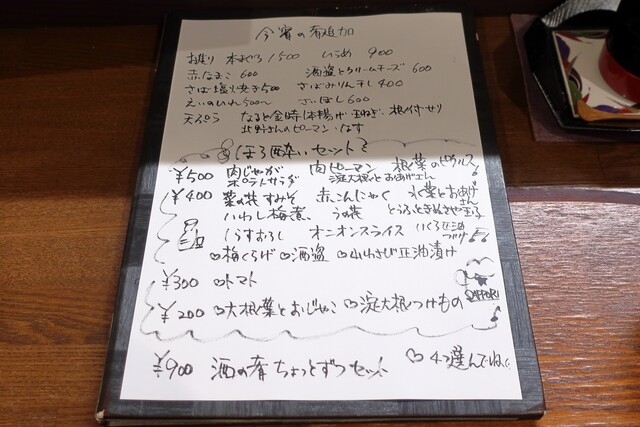 今宵の肴追加
お造り 本まぐろ 1500 いらめ 900
赤なまこ 600 酒盗とクリームチーズ 600
さば塩焼き 500 さばみりん干し 400
えいのひれ 500〜 さいぼし 600
天ぷら なると金時 玉ねぎ 根付セリ
北野さんのピーマン なす
ほろ酔いセット
¥500 肉じゃが 肉ピーマン 根菜のピクルス
ポテトサラダ 淀大根とおあげさん
¥400 菜の花すみそ 赤こんにゃく 水菜とおあげさん
いわし梅煮 うの花
しらすおろし オニオンスライス いくら正油づけ
♡梅くらげ ♡酒盗 ♡山わさび正油漬け
¥300 ♡トマト
SAPPORO
¥200 ♡大根葉とおじゃこ ♡淀大根つけもの
¥900 酒の肴ちょっとずつセット ♡4つ選んでね